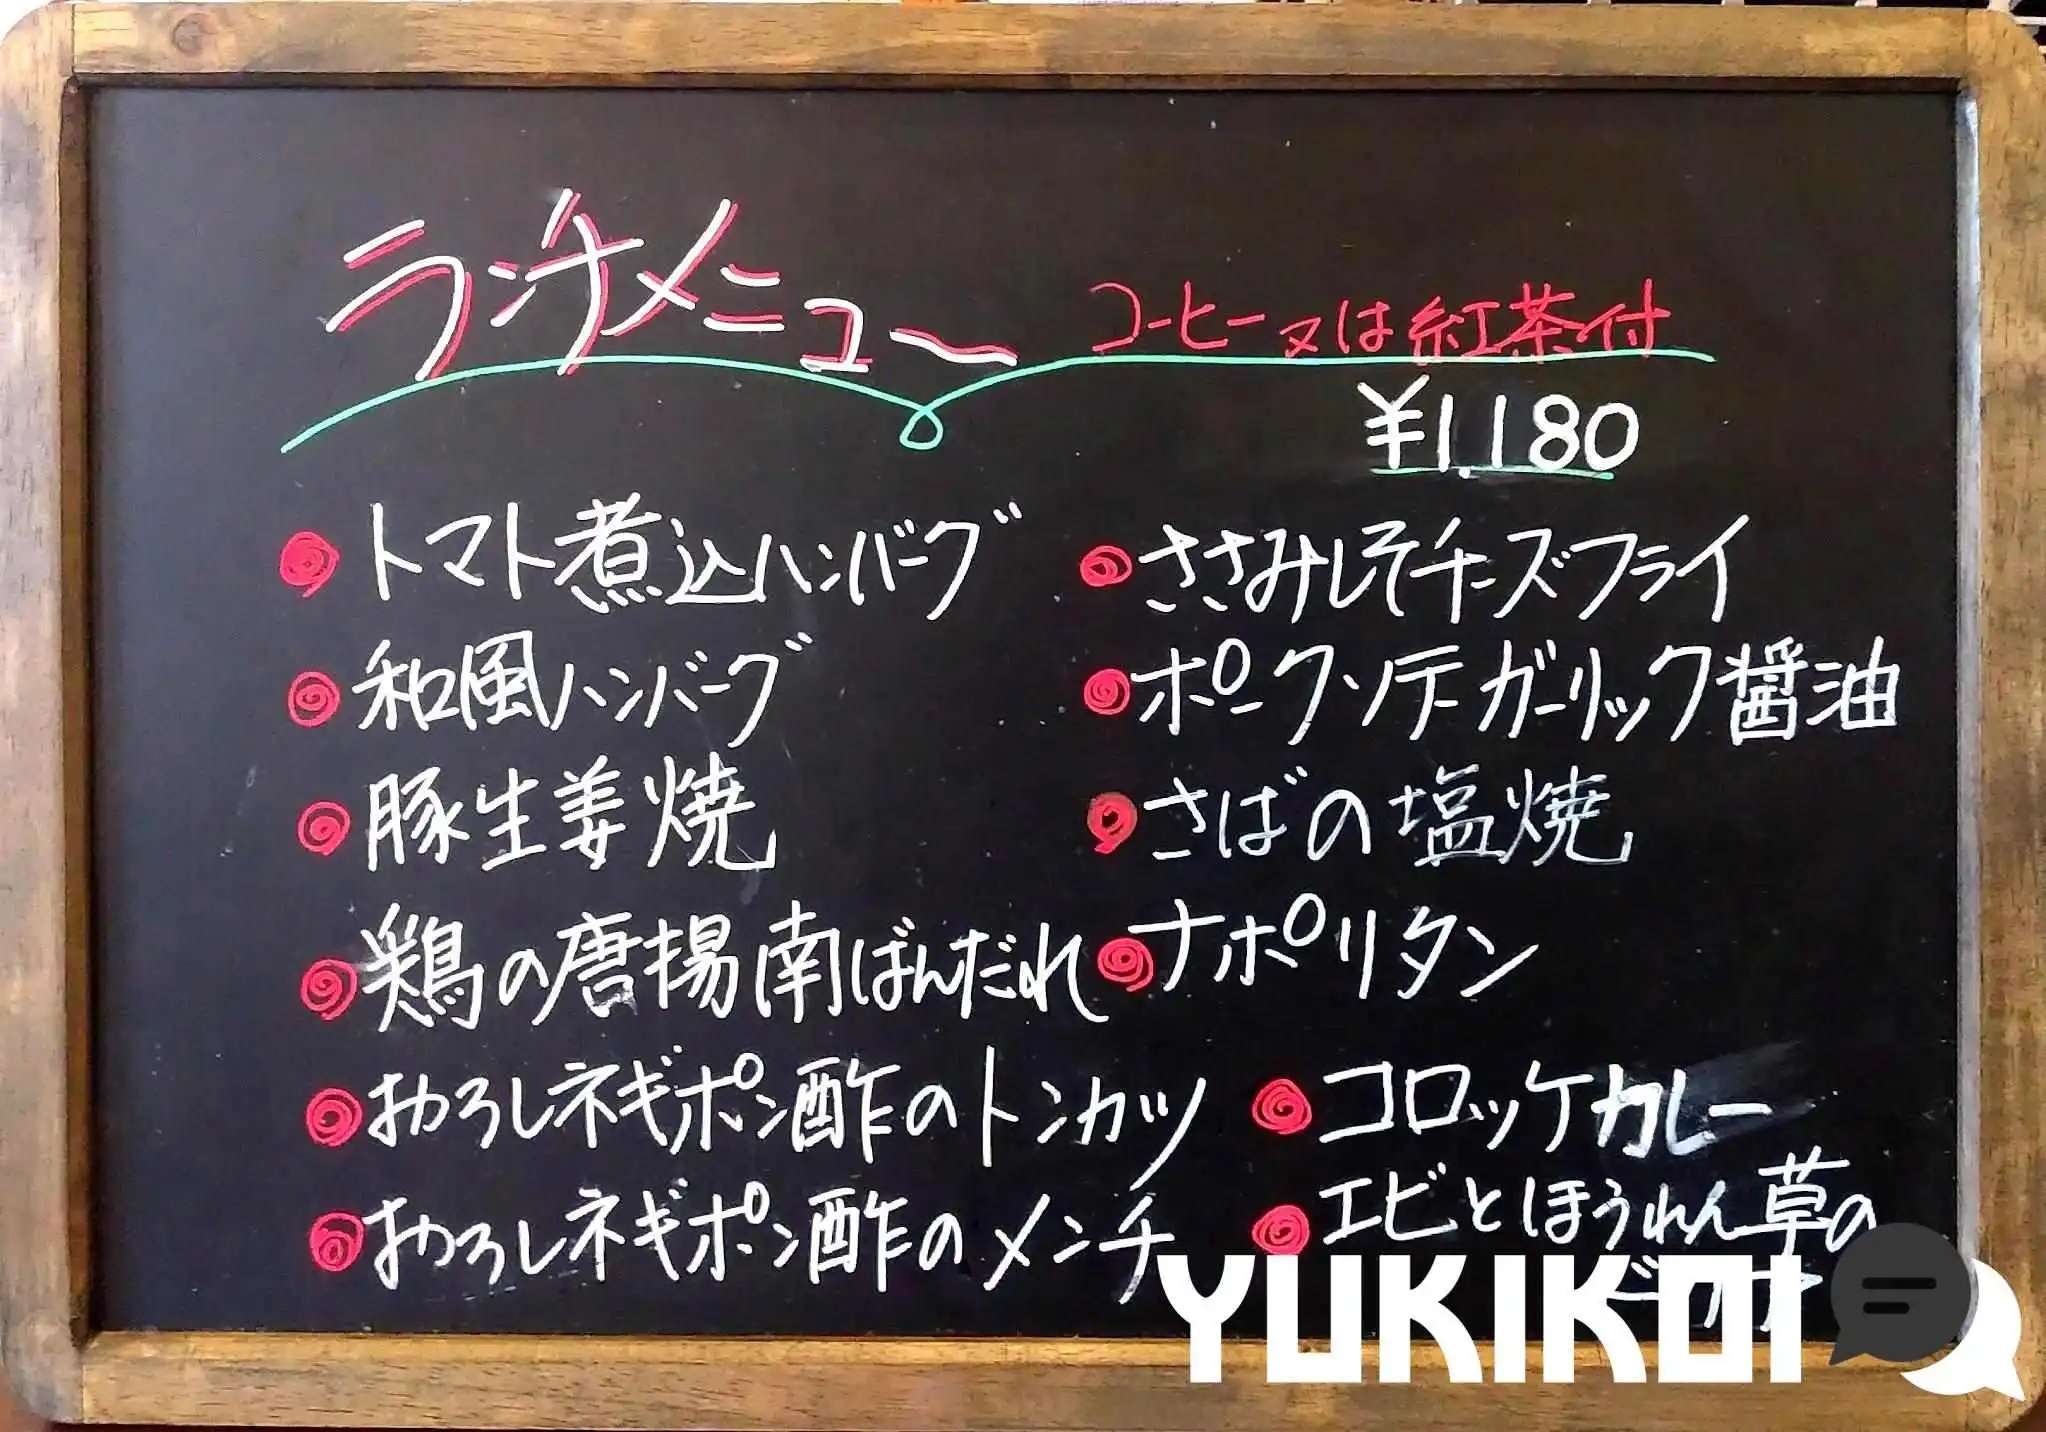 ランチメニュー
コーヒー又は紅茶付
¥1,180
トマト煮込ハンバーグ
和風ハンバーグ
豚生姜焼
鶏の唐揚南ばんだれ
おろしネギポン酢のトンカツ
おろしネギポン酢のメンチ
ささみしそチーズフライ
ポークソテーガーリック醤油
さばの塩焼
ナポリタン
コロッケカレー
エビとほうれん草の
YUKIKOI